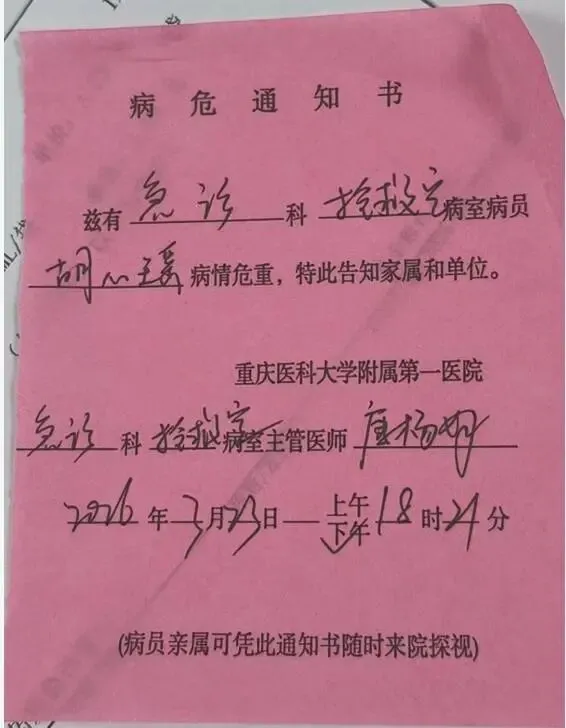 病危通知书
兹有 急诊 科 抢救室 病室病员
胡心瑗 病情危重，特此告知家属和单位。
重庆医科大学附属第一医院
急诊 科 抢救室 病室主管医师
2026 年 3 月 23 日 上午
下午 18 时 21 分
(病员亲属可凭此通知书随时来院探视)